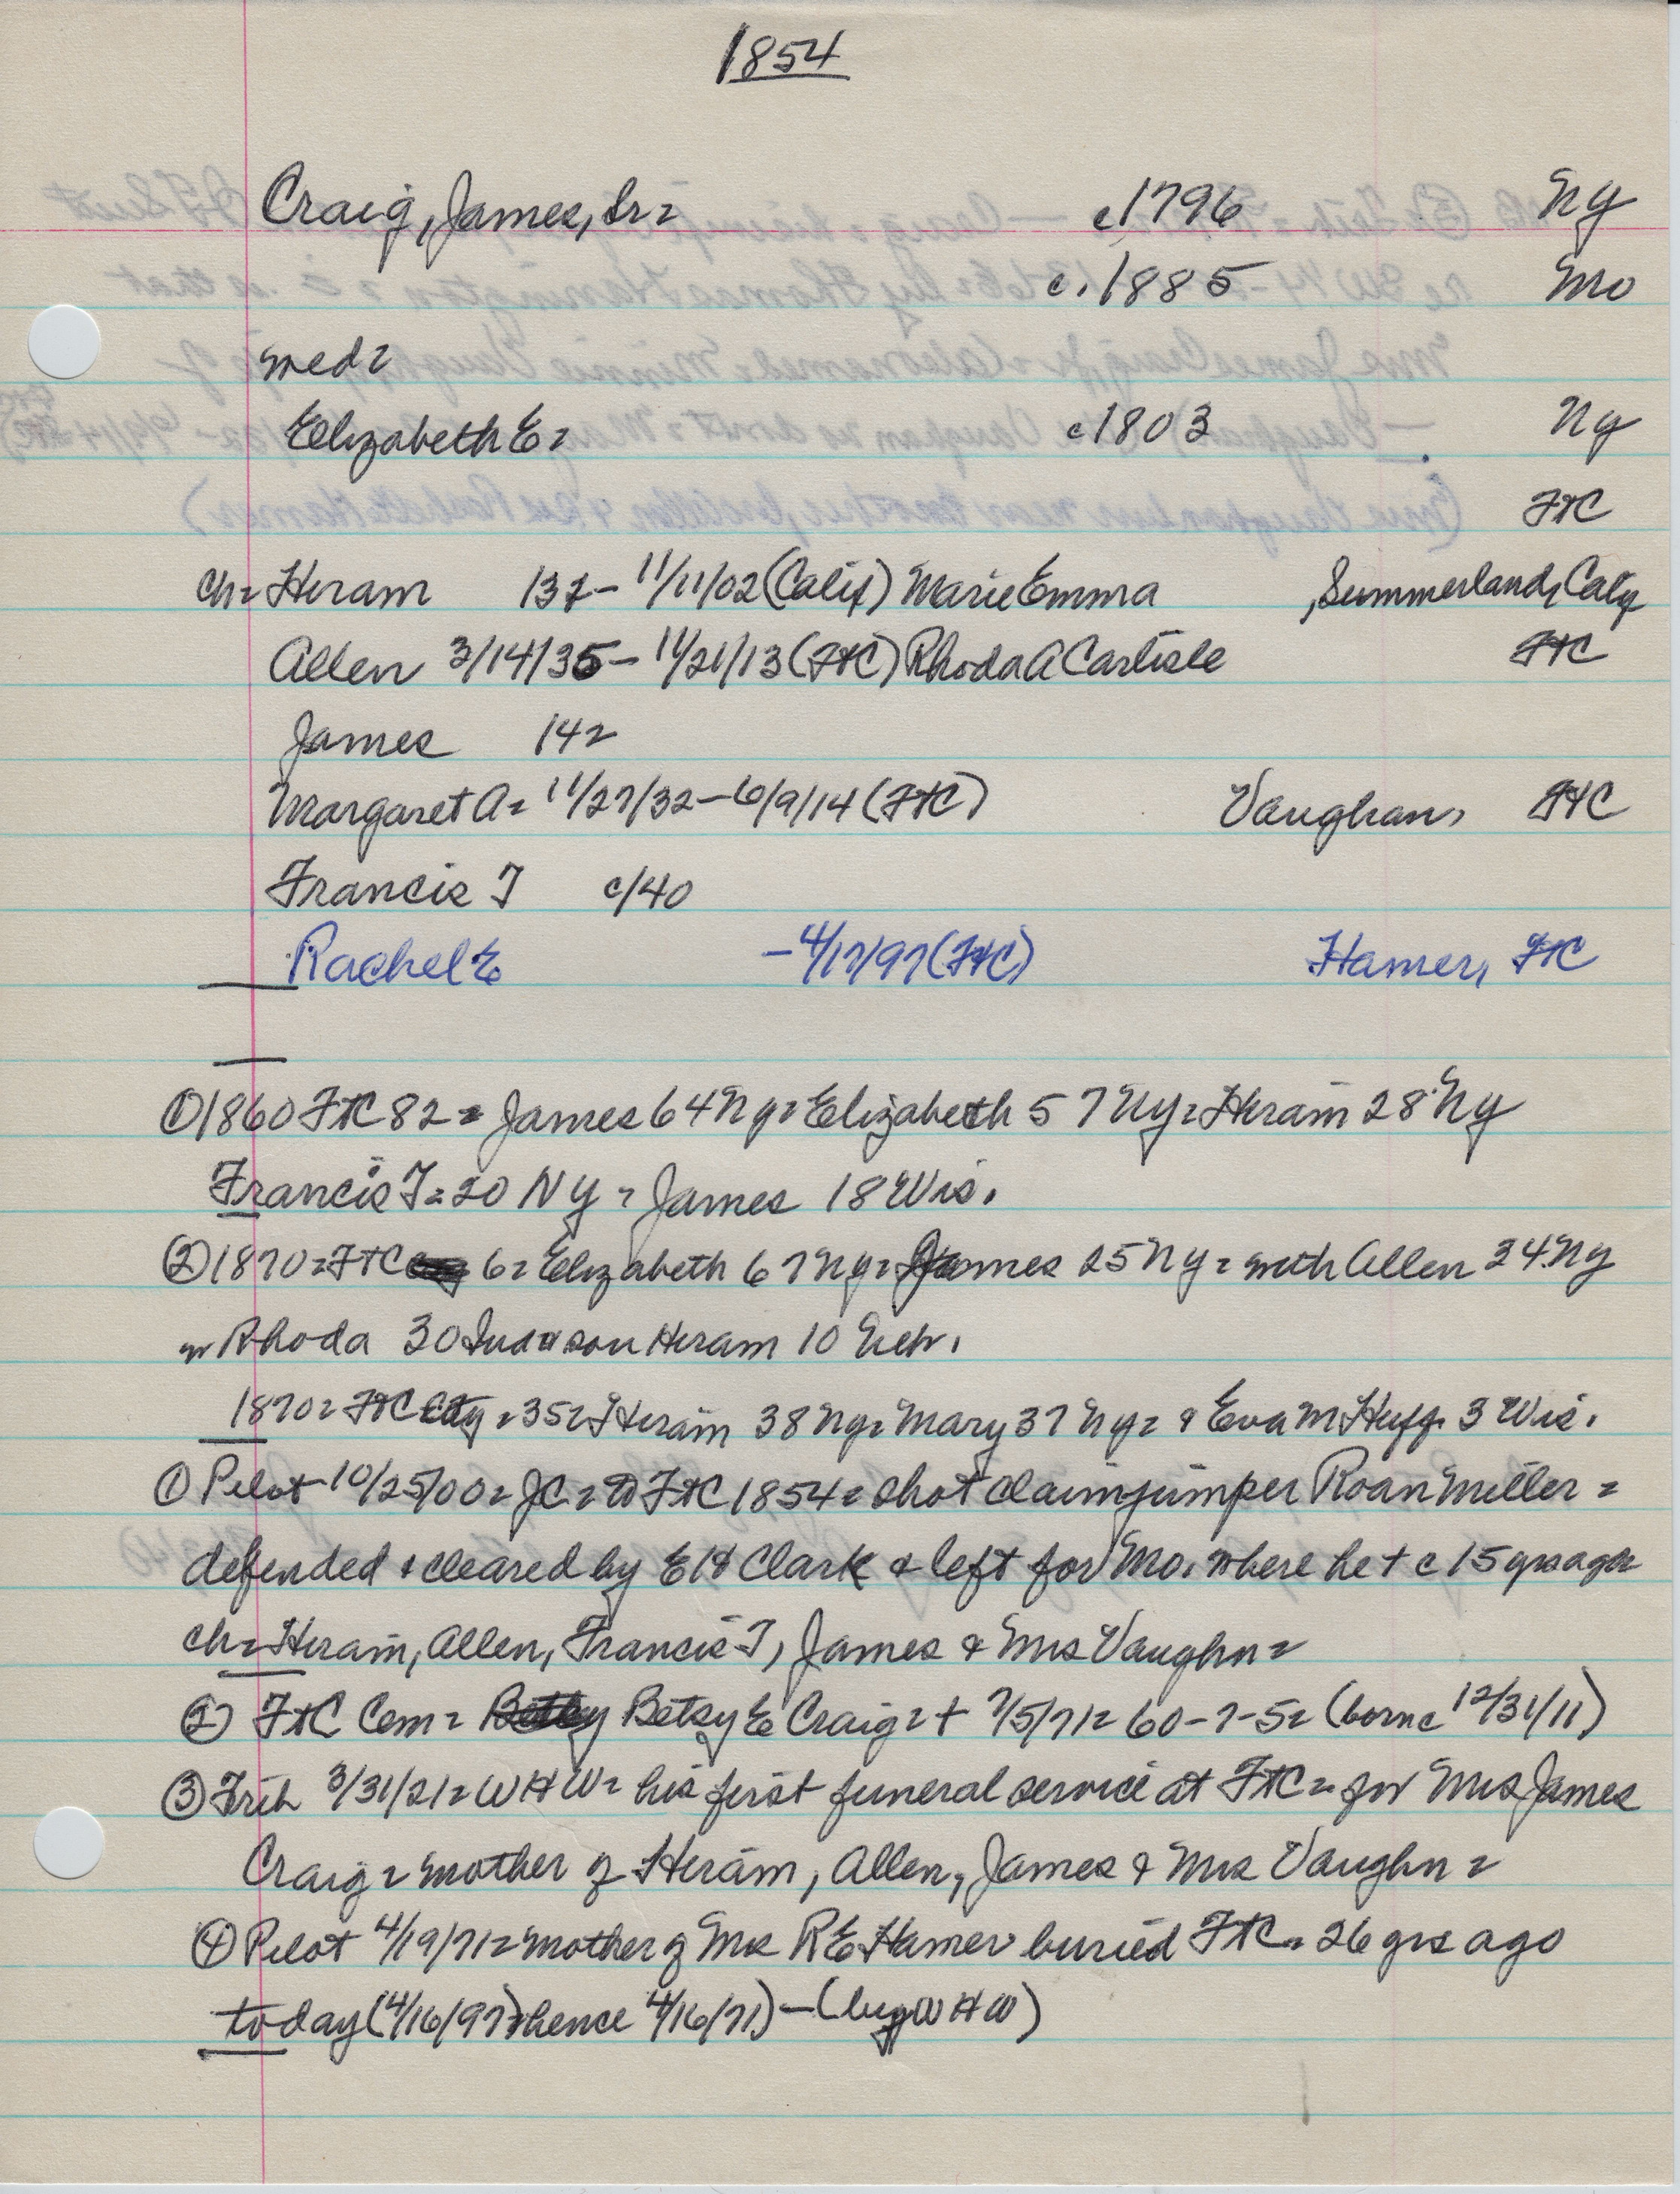 1854
Craig, James, Sr= c1796 Ny
c.1885 Mo
med=
Elizabeth E= c1803 Ny
FtC
ch= Hiram 132- 11/11/02 (Calif) Marie Emma , Summerland, Calif
Allen 3/14/35- 11/21/13 (FtC) Rhoda A Carlisle FtC
James 142
Margaret A= 11/27/32-6/9/14 (FtC) Vaughan, FtC
Francis T c/40
Rachel E -4/17/97 (FtC) Hamer, FtC
① 1860 FtC 82= James 64 Ny= Elizabeth 57 Ny= Hiram 28 Ny
Francis T= 20 Ny= James 18 Wis.
② 1870= FtC 6= Elizabeth 67 Ny= James 25 Ny= with Allen 34 Ny
w Rhoda 30 Ind & son Hiram 10 Neb.
1870= FtC City= 35= Hiram 38 Ny= Mary 37 Ny= & Eva M Huff 3 Wis.
① Pilot 10/25/00= JC= to FtC 1854= shot claimjumper Roan Miller=
defended & cleared by E H Clark & left for Mo. where he + c 15 yrs ago=
ch= Hiram, Allen, Francis T, James & Mrs Vaughn=
② FtC Cem= Betsy E Craig= + 7/5/71= 60-7-5= (born c 12/31/11)
③ Trib 3/31/21= WHW= his first funeral service at FtC= for Mrs James
Craig= mother of Hiram, Allen, James & Mrs Vaughn=
④ Pilot 4/19/71= mother of Mrs R E Hamer buried FtC= 26 yrs ago
today (4/16/97) hence 4/16/71) - (by WHW)